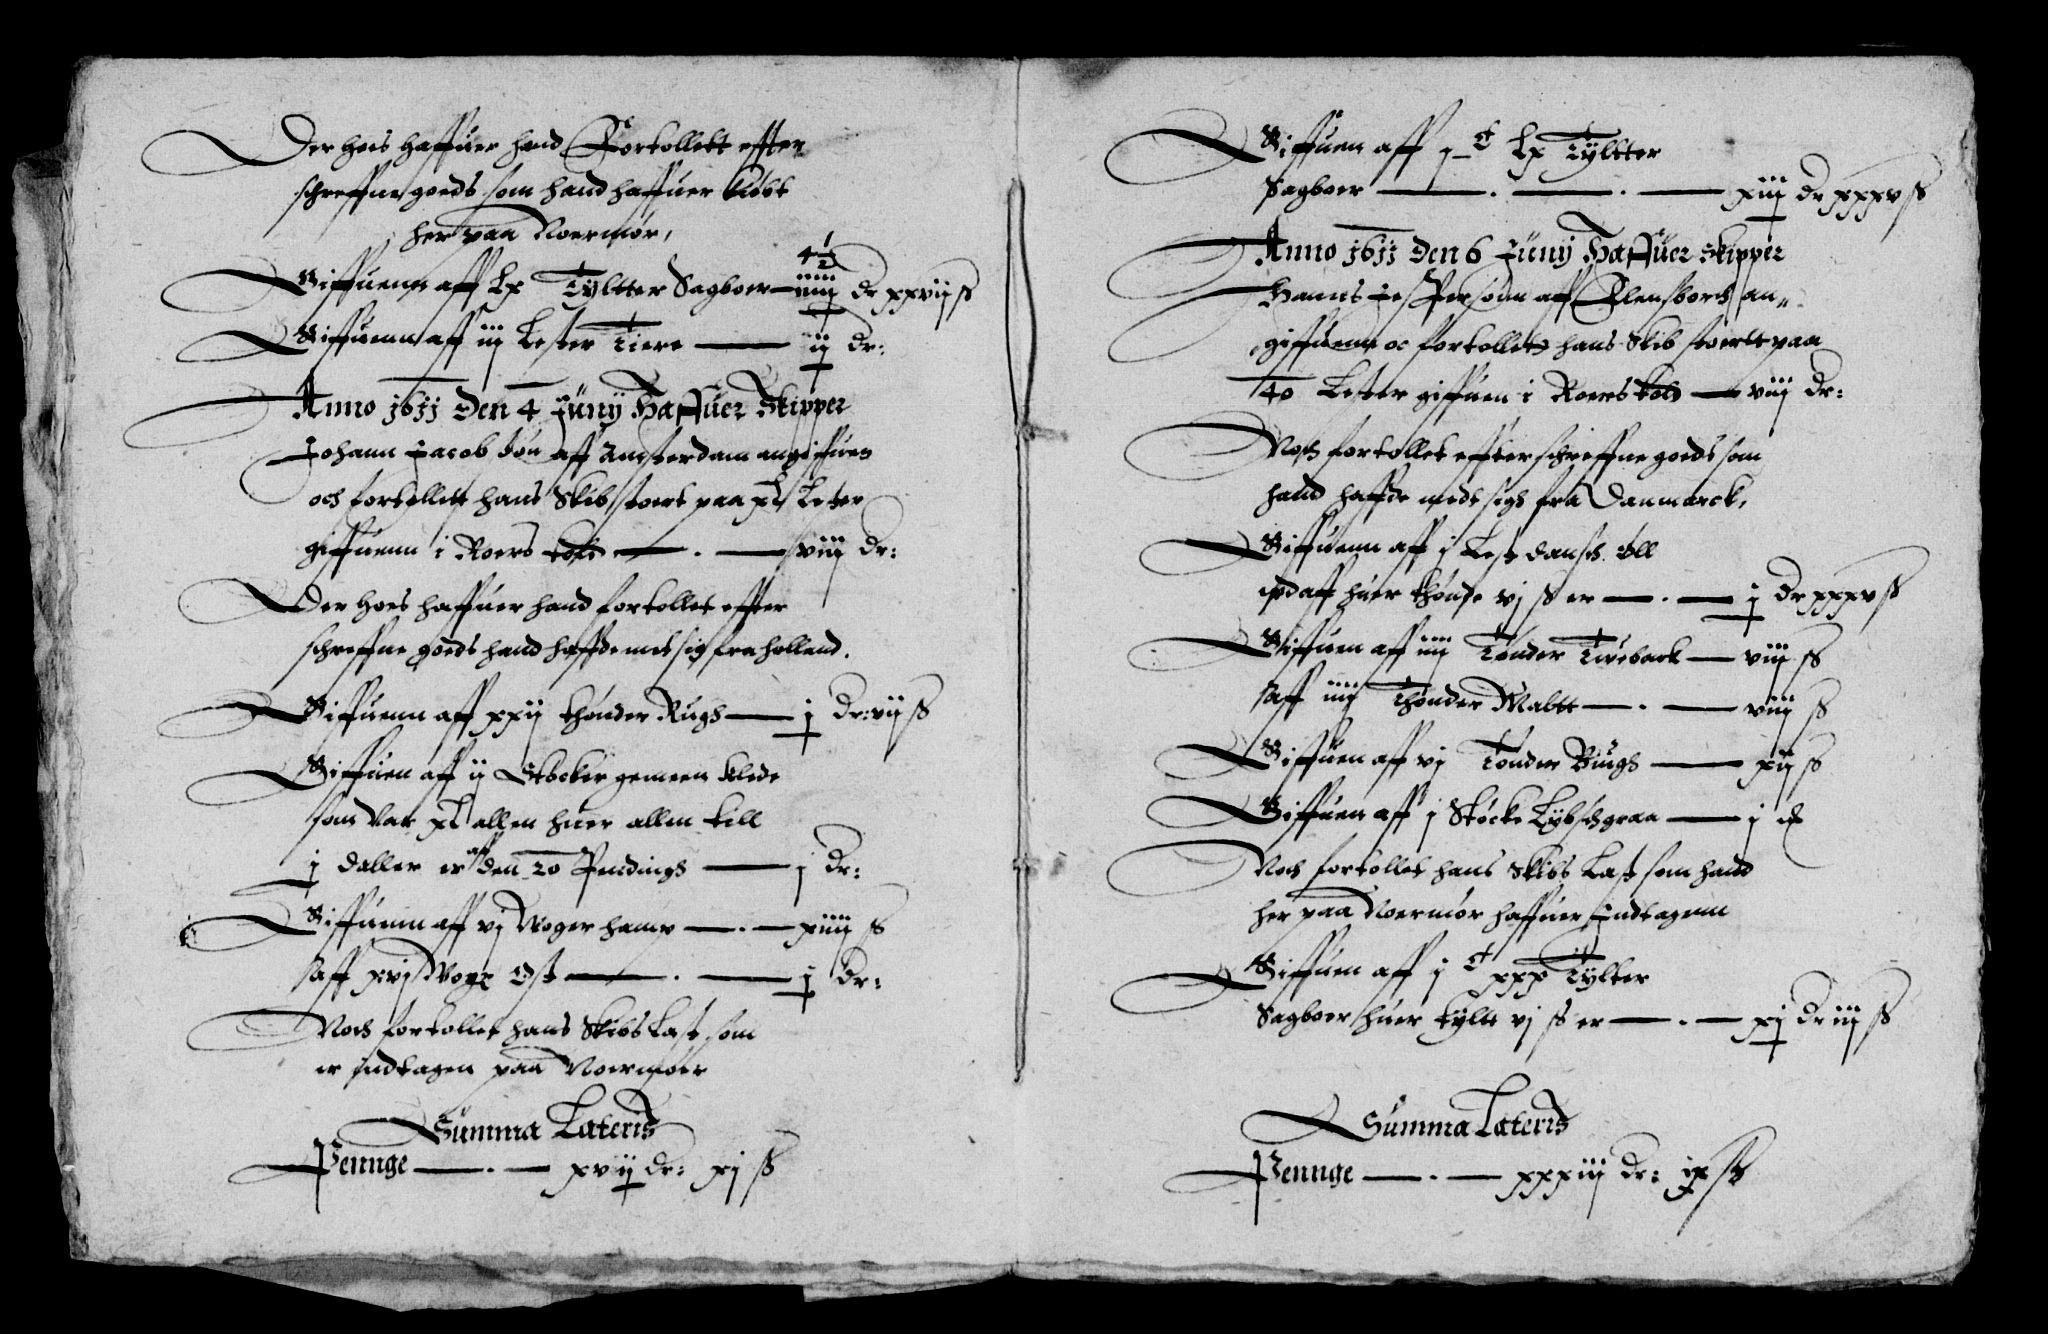 Der hois haffuer hand Fortollett effter
schreffne goeds som hand haffuer Kiøbt
her paa Noermør,
4½
Giffuenn aff Lx Tyltter Sagboer — iiiij dr xxvij ß
Giffuenn aff iij Lester Tiere — ij dr:
Anno 1611 Den 4 Junij Haffuer Skipper
Johann Jacob søn aff Amsterdam angiffuen
och fortollett hans Skib stoert paa xL Lester
giffuenn i Roers told — . — viij dr:
Der hoes haffuer hand fortollet effter
schreffne goeds hand haffde med sig fra holland.
Giffuenn aff xxij thønder Rugh — j dr: vij ß
Giffuen aff ij Støcker gemeen klede
som var xL allen huer allen till
j daller er aff den 20 Pendings — j dr:
Giffuenn aff vj Woger hamp — . — xiiij ß
aff xvj Woge Ost — . — j dr:
Noch fortollet hans Skibs Last som
er indtagen paa Noermøer
Summa Lateris
Pennge — . — xvij dr: xj ß
Giffuen aff j C Lx Tyltter
Sagboer — . — . — xiij dr xxxv ß
Anno 1611 Den 6 Junij Haffuer Skipper
Hanns Jes Persønn aff Flensborch an„
giffuenn oc fortollet hans Skib stoertt paa
40 Lester giffuen i Roers told — viij dr:
Noch fortollet effter schreffne goeds som
hand haffde medt sigh fra Danmarck,
Giffuenn aff j Lest dansch øll
aff huer thønde vj ß er — . — j dr xxxv ß
Giffuen aff iiij Tønder Tweback — viij ß
aff iiij Thønder Maltt — . — viij ß
Giffuen aff vj Tønder Biugh — xij ß
Giffuen aff j Støcke Lybsch graa — j
Noch fortollet hans Skibs Last som hand
her paa Noermør haffuer Indtagenn
Giffuen aff j C xxx Tylter
Sagboer huer tyltt vj ß er — . — xj dr iij ß
Summa Lateris
Pennge — . — xxxiij dr: ix ß